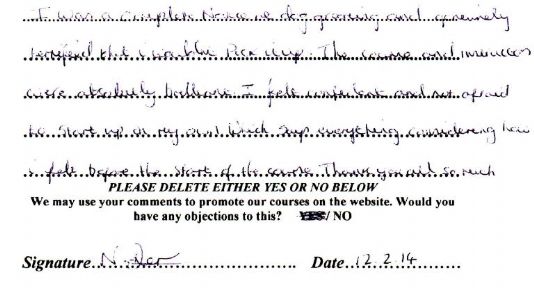 I was a complete Novice in dog grooming and genuinely
terrified that I wouldn't pick it up. The course and instructors
were absolutely brilliant. I felt confident and not afraid
to start up on my own! Which says everything considering how
I felt before the start of the course. Thank you all so much
PLEASE DELETE EITHER YES OR NO BELOW
We may use your comments to promote our courses on the website. Would you
have any objections to this? YES/ NO
Signature Date 12.2.14